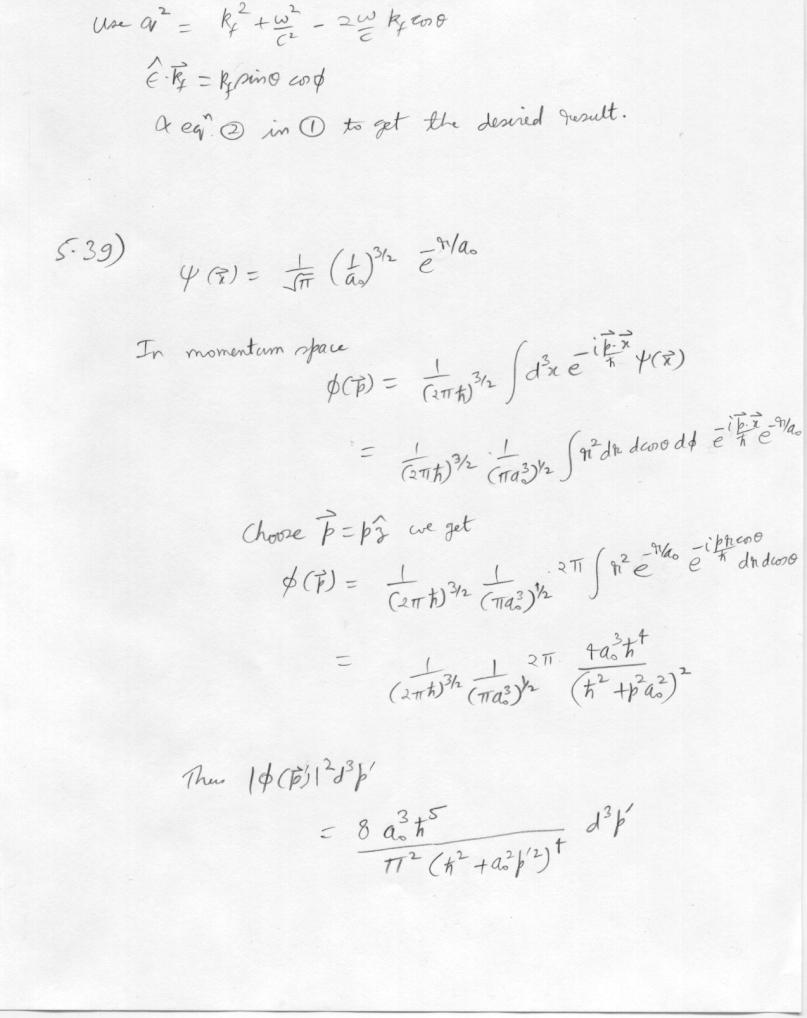 Use q² = k_f² + ω²/c² - 2 ω/c k_f cosθ
ε̂·k⃗_f = k_f sinθ cosϕ
& eqⁿ. ② in ① to get the desired result.
5.39)
ψ(x⃗) = 1/√π (1/a₀)^{3/2} e^{-r/a₀}
In momentum space
ϕ(p⃗) = 1/(2πħ)^{3/2} ∫ d³x e^{-i p⃗·x⃗/ħ} ψ(x⃗)
= 1/(2πħ)^{3/2} · 1/(πa₀³)^{1/2} ∫ r² dr dcosθ dϕ e^{-i p⃗·x⃗/ħ} e^{-r/a₀}
Choose p⃗ = p ẑ we get
ϕ(p⃗) = 1/(2πħ)^{3/2} 1/(πa₀³)^{1/2} · 2π ∫ r² e^{-r/a₀} e^{-i pr cosθ/ħ} dr dcosθ
= 1/(2πħ)^{3/2} 1/(πa₀³)^{1/2} 2π 4a₀³ħ⁴/(ħ² + p²a₀²)²
Then |ϕ(p⃗')|² d³p'
= 8 a₀³ ħ⁵/π² (ħ² + a₀² p'²)⁴ d³p'